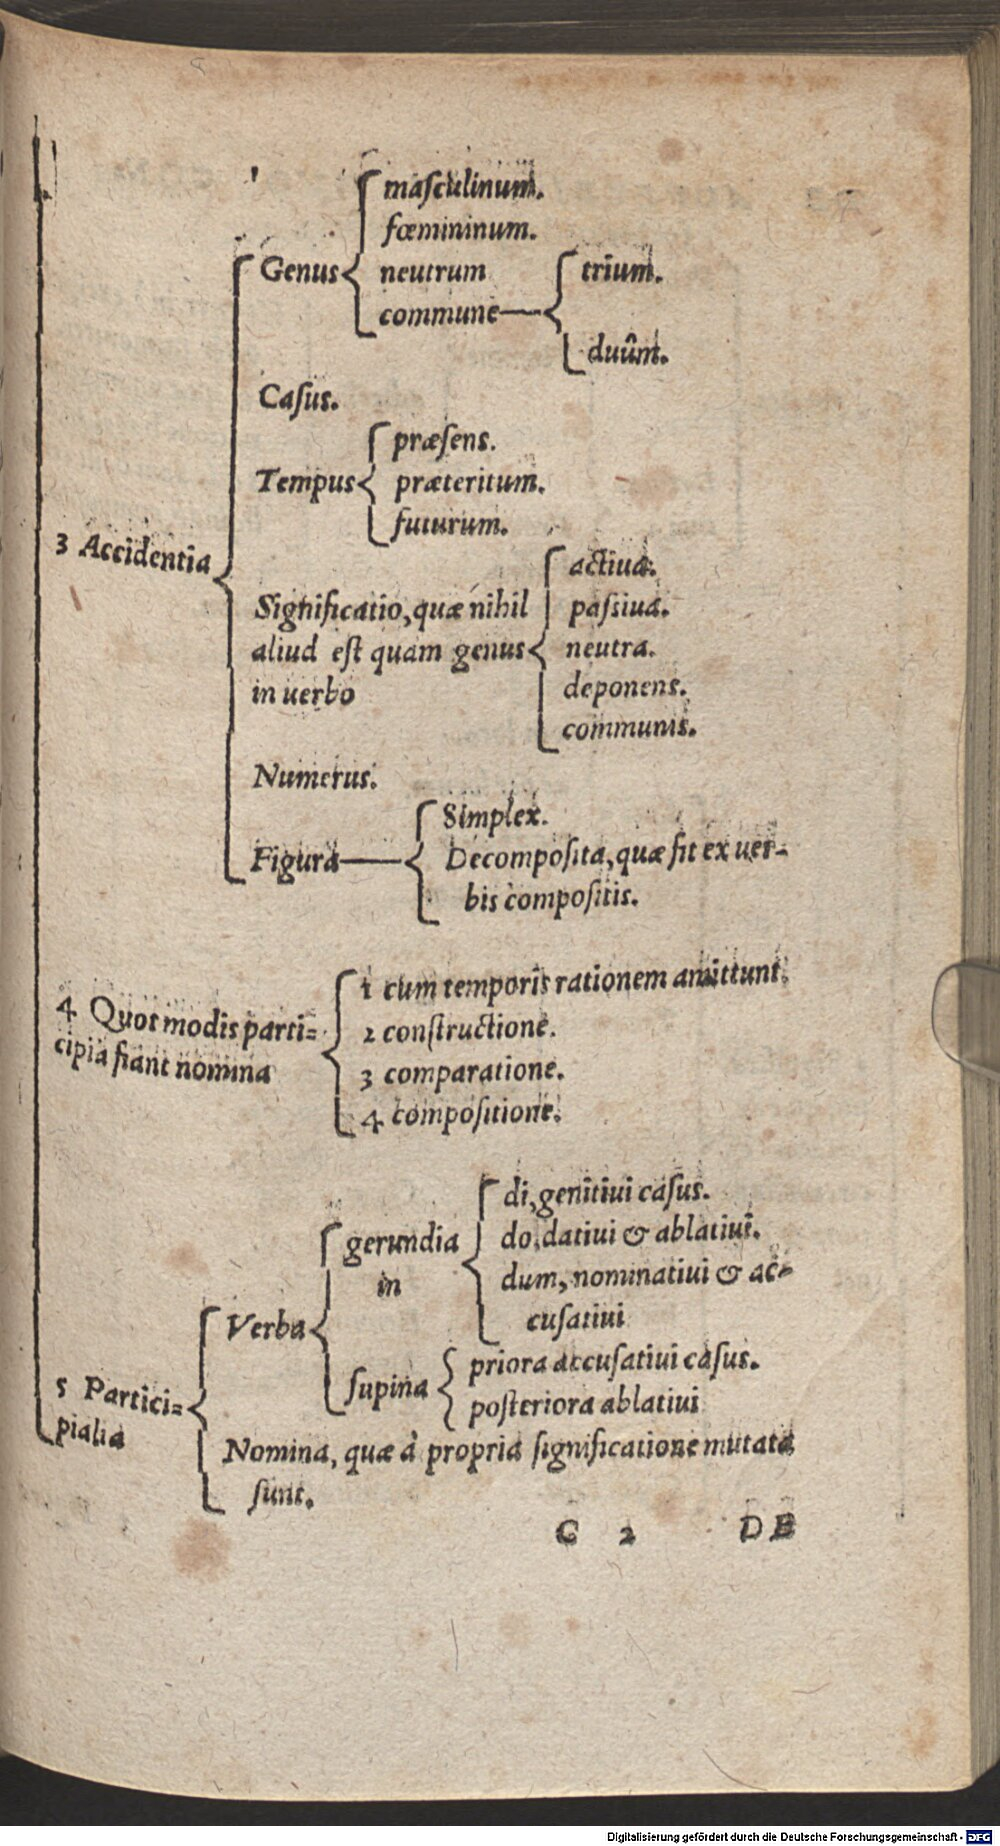 maſculinum.
fœmininum.
Genus neutrum trium.
commune
duûm.
Caſus.
præſens.
Tempus præteritum.
futurum.
3 Accidentia
actiua.
Significatio, quæ nihil paſsiua.
aliud eſt quam genus neutra.
in uerbo deponens.
communis.
Numerus.
Simplex.
Figura Decompoſita, quæ fit ex uer-
bis compoſitis.
1 cum temporis rationem amittunt.
4 Quot modis parti= 2 conſtructione.
cipia fiant nomina 3 comparatione.
4 compoſitione.
di, genitiui caſus.
gerundia do, datiui & ablatiui.
in dum, nominatiui & ac-
cuſatiui
Verba
priora accuſatiui caſus.
ſupina
poſteriora ablatiui
5 Partici=
pialia
Nomina, quæ à propria ſignificatione mutata
ſunt.
C 2 DE
Digitalisierung gefördert durch die Deutsche Forschungsgemeinschaft - DFG